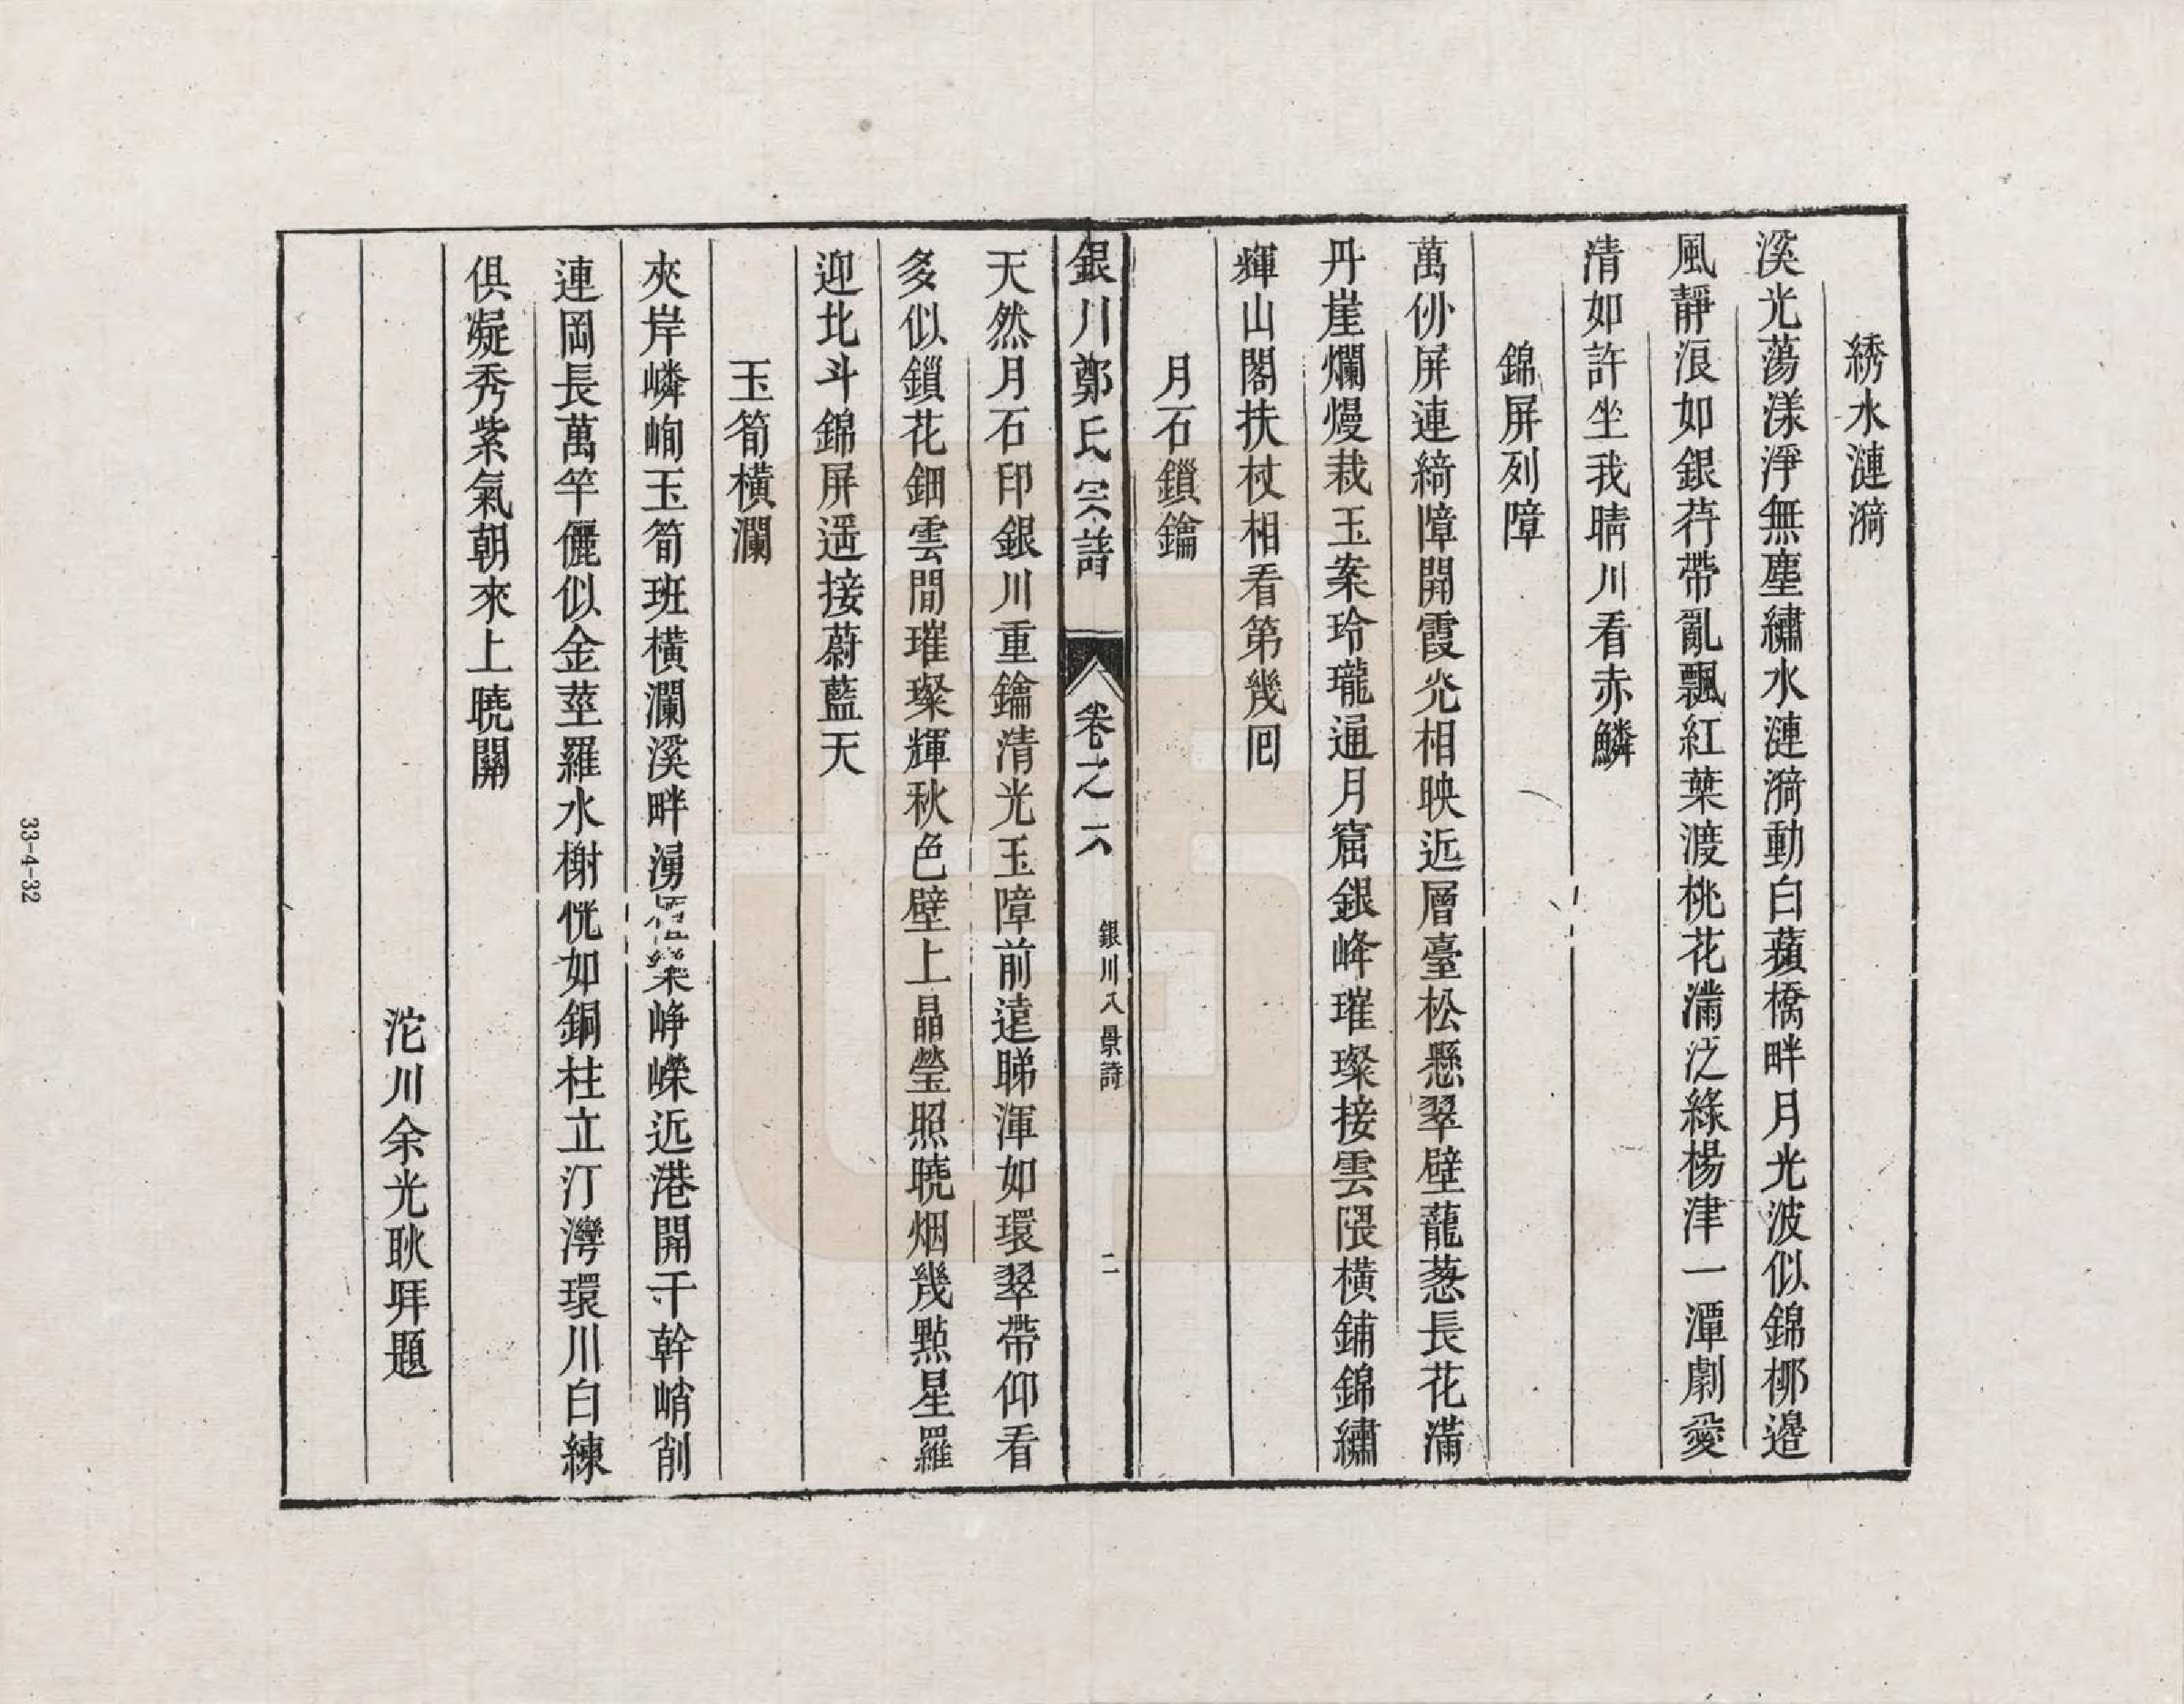 綉水漣漪
溪光蕩漾淨無塵繡水漣漪動白蘋橋畔月光波似錦栁邉
風靜浪如銀荇帶亂飄紅葉渡桃花滿泛綠楊津一潭劇愛
清如許坐我晴川看赤鱗
錦屏列障
萬仞屏連綺障開霞光相映近層臺松懸翠壁蘢蔥長花滿
丹崖爛熳栽玉案玲瓏通月窟銀峰璀璨接雲隈橫鋪錦繡
輝山閣扶杖相看第幾囘
月石鎖鑰
銀川鄭氏宗譜
卷之六
銀川八景詩
二
天然月石印銀川重鑰清光玉障前遠睇渾如環翠帶仰看
多似鎖花鈿雲間璀璨輝秋色壁上晶瑩照曉烟幾點星羅
迎北斗錦屏遥接蔚藍天
玉筍橫瀾
夾岸嶙峋玉筍班橫瀾溪畔湧峥嶸近港開干幹峭削
連岡長萬竿儷似金莖羅水榭恍如銅柱立汀灣環川白練
俱凝秀紫氣朝來上曉關
沱川余光耿拜題
33-4-32